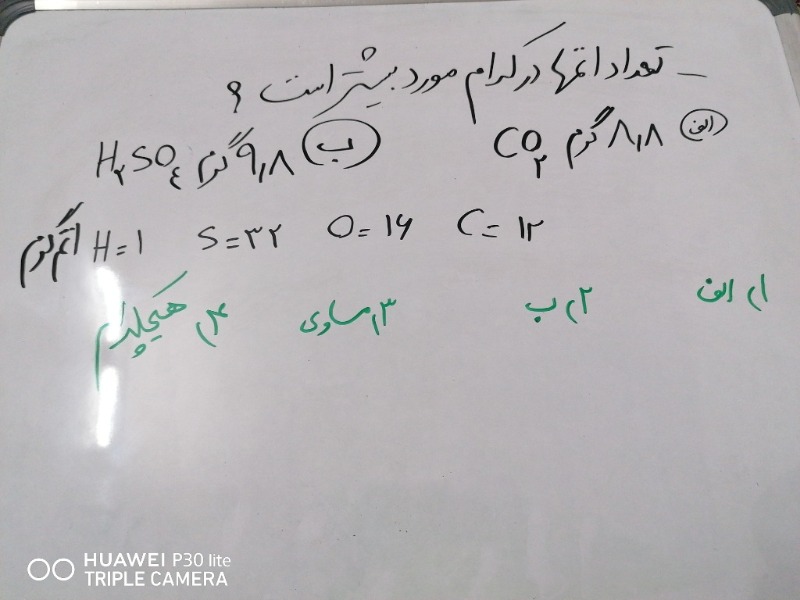 _ تعداد اتمها در کدام مورد بیشتر است ؟
الف ۸٫۸ گرم CO۲ ب ۹٫۸ گرم H۲SO۴
C = ۱۲ O = ۱۶ S = ۳۲ H = ۱ اتم گرم
۱) الف ۲) ب ۳) مساوی ۴) هیچکدام
HUAWEI P30 lite
TRIPLE CAMERA